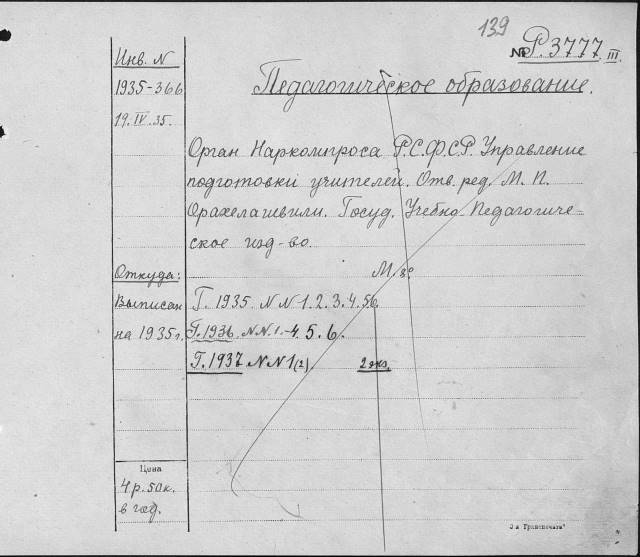 139
№ Р.3777 III
Инв. N
1935-366
19.IV.35.
Педагогическое образование.
Орган Наркомпроса Р.С.Ф.С.Р. Управление
подготовки учителей. Отв. ред. М. П.
Орахелашвили. Госуд. Учебно-Педагогиче-
ское изд-во.
М. 8°
Откуда:
Выписан
на 1935 г.
Г. 1935. N N 1. 2. 3. 4. 5 6.
Г. 1936 N.N. 1.-4. 5. 6.
Г. 1937 N N 1 (2). 2 экз.
Цена
4 р. 50 к.
в год.